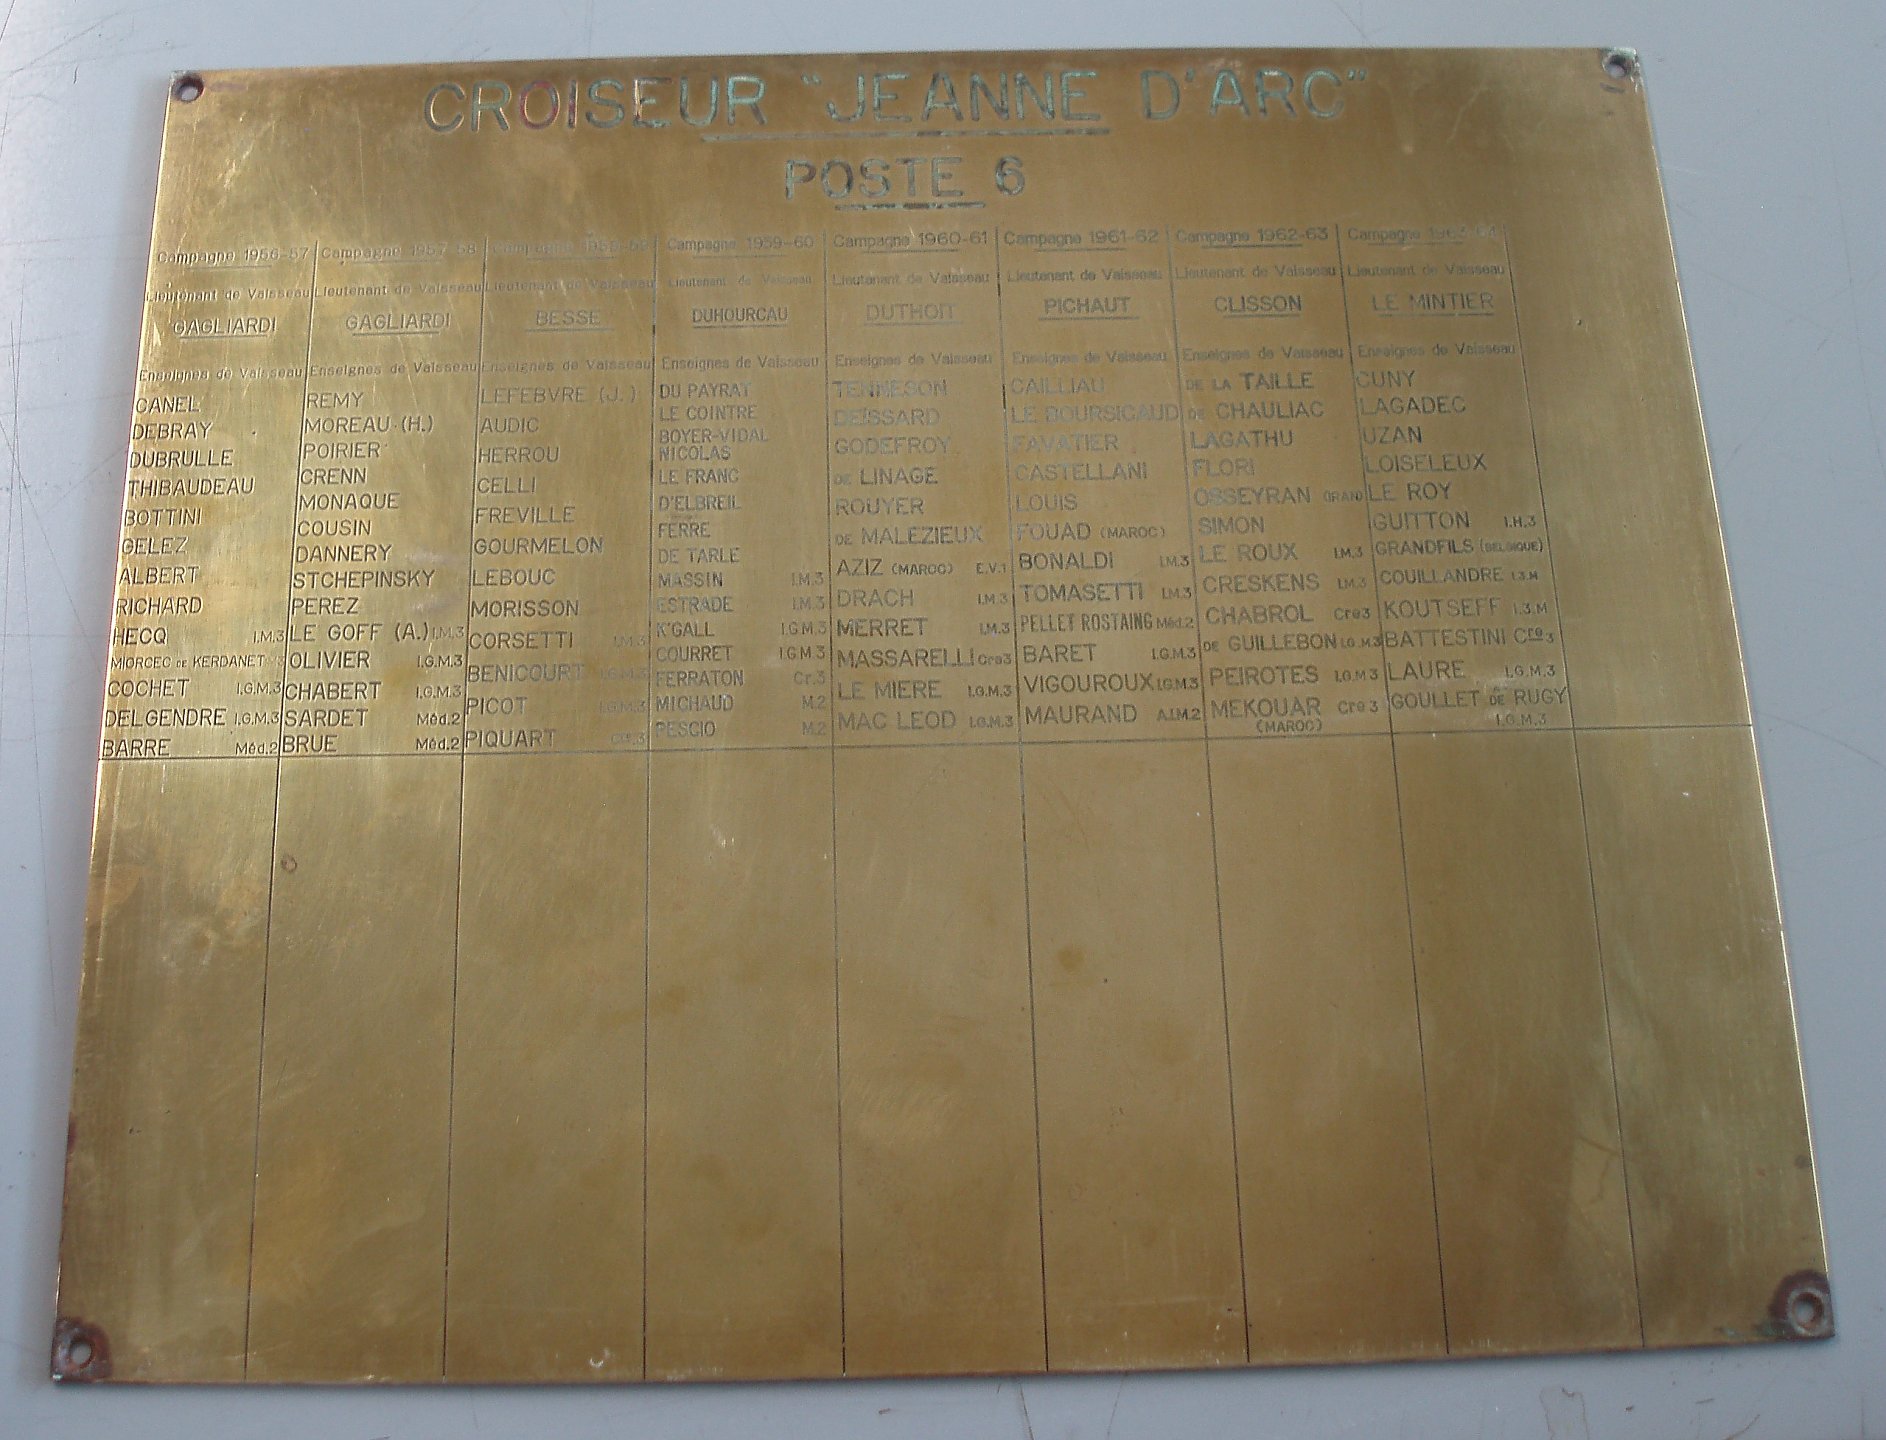 CROISEUR "JEANNE D'ARC"
POSTE 6
Campagne 1956-57
Lieutenant de Vaisseau
GAGLIARDI
Enseignes de Vaisseau
CANEL
DEBRAY
DUBRULLE
THIBAUDEAU
BOTTINI
GELEZ
ALBERT
RICHARD
HECQ I.M.3
MIORCEC DE KERDANET
COCHET I.G.M.3
DELGENDRE I.G.M.3
BARRE Méd.2
Campagne 1957-58
Lieutenant de Vaisseau
GAGLIARDI
Enseignes de Vaisseau
REMY
MOREAU (H.)
POIRIER
CRENN
MONAQUE
COUSIN
DANNERY
STCHEPINSKY
PEREZ
LE GOFF (A.) I.M.3
OLIVIER I.G.M.3
CHABERT I.G.M.3
SARDET Méd.2
BRUE Méd.2
Campagne 1958-59
Lieutenant de Vaisseau
BESSE
Enseignes de Vaisseau
LEFEBVRE (J.)
AUDIC
HERROU
CELLI
FREVILLE
GOURMELON
LEBOUC
MORISSON
CORSETTI I.M.3
BENICOURT I.G.M.3
PICOT I.G.M.3
PIQUART Cre.3
Campagne 1959-60
Lieutenant de Vaisseau
DUHOURCAU
Enseignes de Vaisseau
DU PAYRAT
LE COINTRE
BOYER-VIDAL
NICOLAS
LE FRANC
D'ELBREIL
FERRE
DE TARLE
MASSIN I.M.3
ESTRADE I.M.3
K'GALL I.G.M.3
COURRET I.G.M.3
FERRATON Cr.3
MICHAUD M.2
PESCIO M.2
Campagne 1960-61
Lieutenant de Vaisseau
DUTHOIT
Enseignes de Vaisseau
TENNESON
DEISSARD
GODEFROY
DE LINAGE
ROUYER
DE MALEZIEUX
AZIZ (MAROC) E.V.1
DRACH I.M.3
MERRET I.M.3
MASSARELLI Cre3
LE MIERE I.G.M.3
MAC LEOD I.G.M.3
Campagne 1961-62
Lieutenant de Vaisseau
PICHAUT
Enseignes de Vaisseau
CAILLIAU
LE BOURSICAUD
FAVATIER
CASTELLANI
LOUIS
FOUAD (MAROC)
BONALDI I.M.3
TOMASETTI I.M.3
PELLET ROSTAING Méd.2
BARET I.G.M.3
VIGOUROUX I.G.M.3
MAURAND A.I.M.2
Campagne 1962-63
Lieutenant de Vaisseau
CLISSON
Enseignes de Vaisseau
DE LA TAILLE
DE CHAULIAC
LAGATHU
FLORI
OSSEYRAN (IRAN)
SIMON
LE ROUX I.M.3
CRESKENS I.M.3
CHABROL Cre3
DE GUILLEBON I.G.M3
PEIROTES I.G.M3
MEKOUAR Cre3
(MAROC)
Campagne 1963-64
Lieutenant de Vaisseau
LE MINTIER
Enseignes de Vaisseau
CUNY
LAGADEC
UZAN
LOISELEUX
LE ROY
GUITTON I.H.3
GRANDFILS (BELGIQUE)
COUILLANDRE I.3.M
KOUTSEFF I.3.M
BATTESTINI Cre3
LAURE I.G.M.3
GOULLET DE RUGY
I.G.M.3